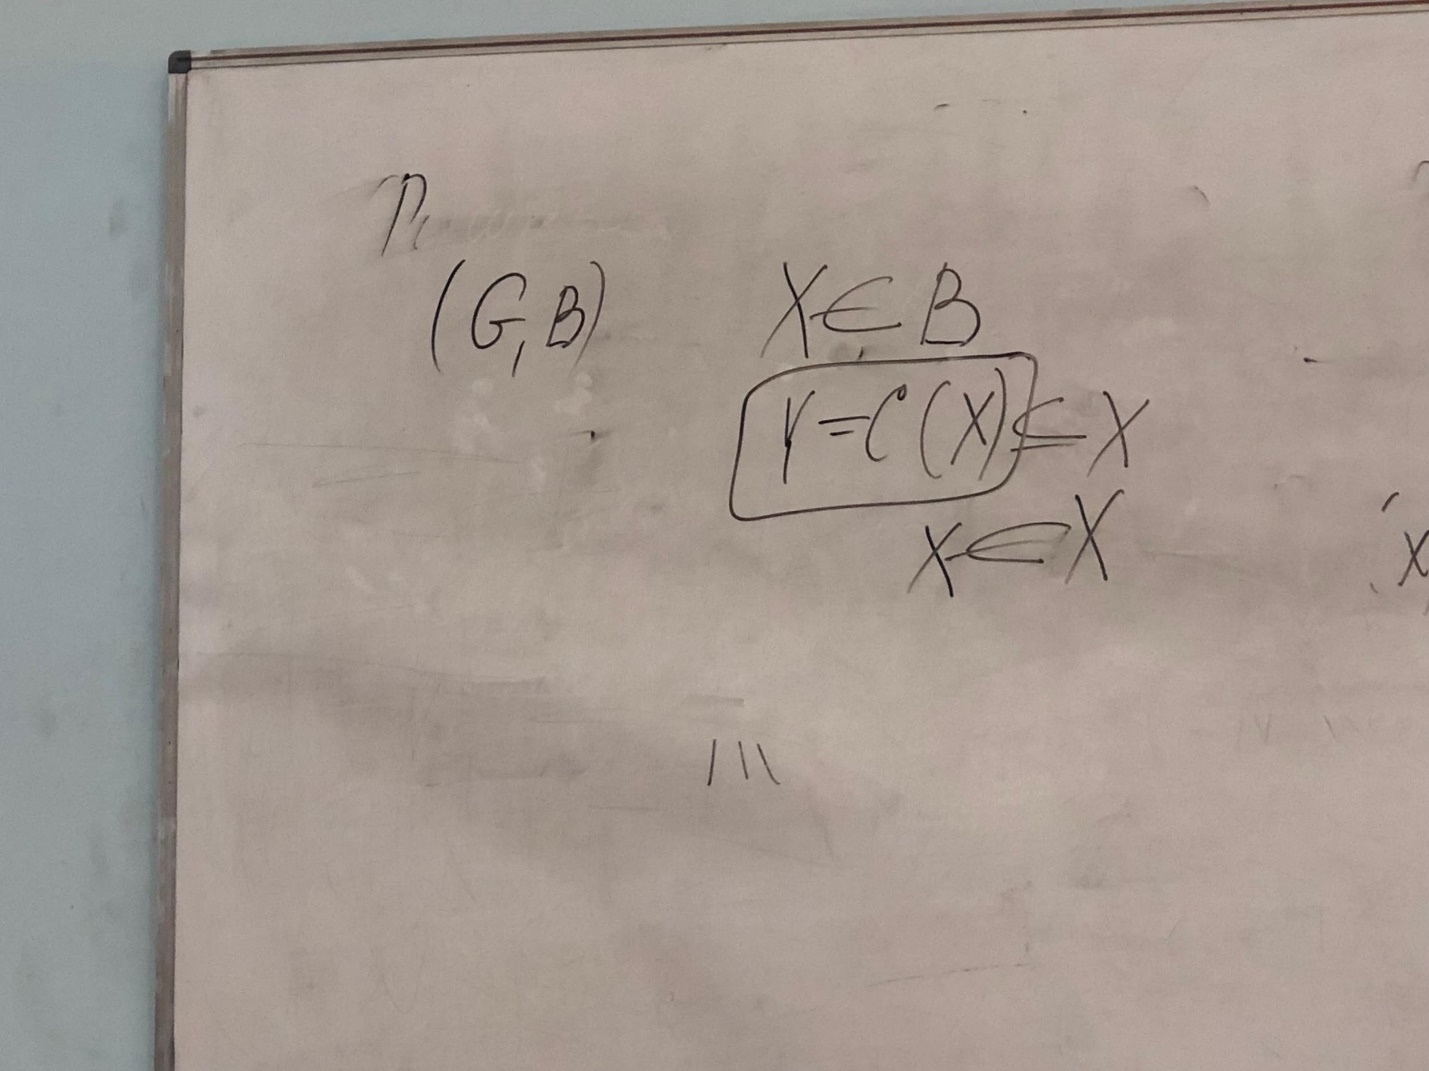 (G, B) X ∈ B
Y = C(X) ⊆ X
x ∈ X